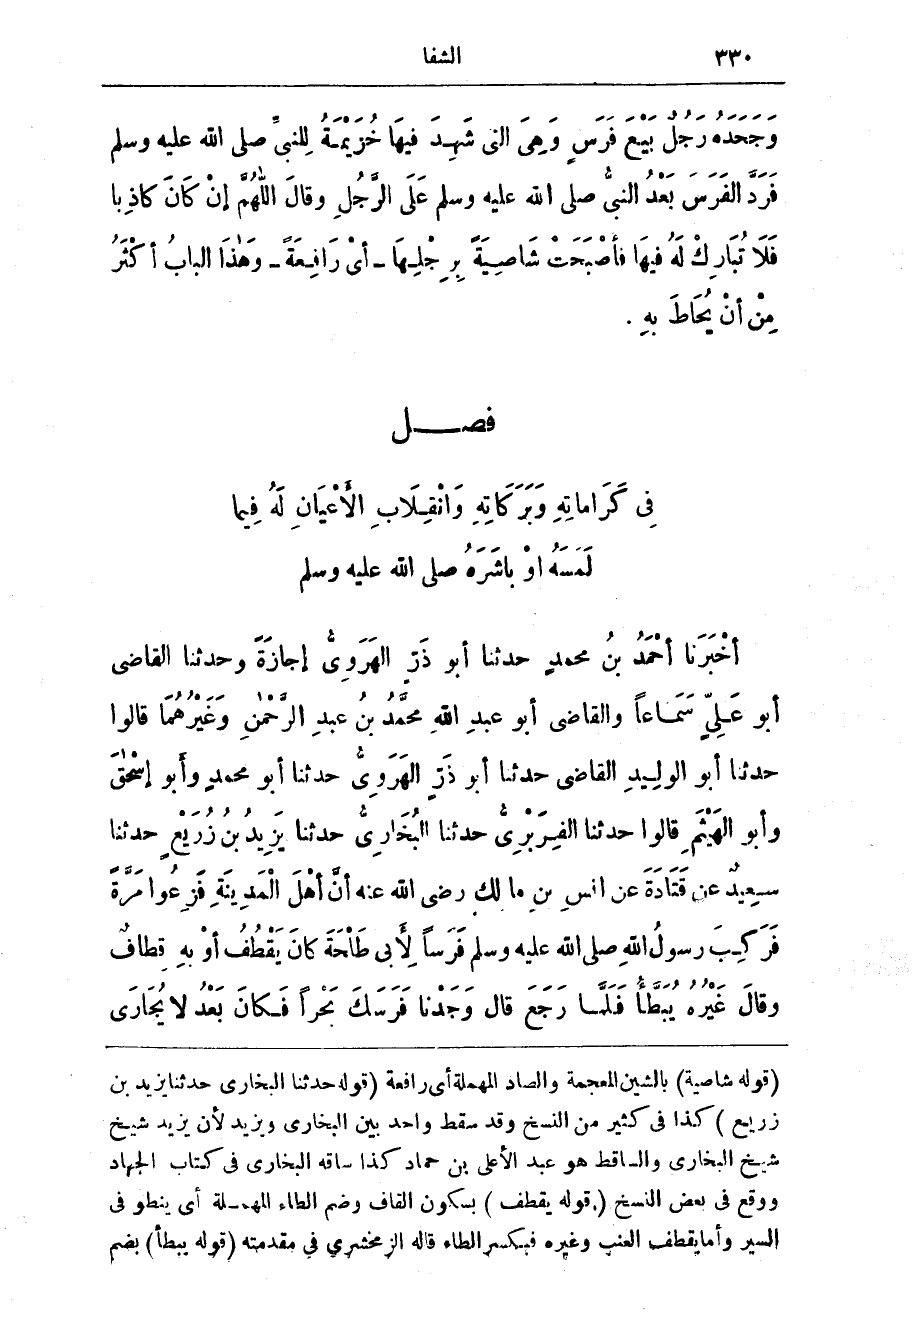 ٣٣٠ الشفا
وَجَحَدَهُ رَجُلٌ بَيْعَ فَرَسٍ وَهِىَ التى شَهِدَ فِيهَا خُزَيْمَةُ لِلنبىِّ صلى الله عليه وسلم
فَرَدَّ الفَرَسَ بَعْدُ النبىُّ صلى الله عليه وسلم عَلَى الرَّجُلِ وقالَ اللَّهُمَّ إنْ كَانَ كاذِبا
فَلَا تُبَارِكْ لَهُ فيهَا فأصْبَحَتْ شَاصِيَةً بِرِجْلِهَا ـ أىْ رَافِعَةً ـ وهٰذَا البابُ أكْثَرُ
مِنْ أنْ يُحَاطَ بِهِ .
فصـــل
فى كَرَاماتِهِ وَبَرَكَاتِهِ وَانْقِلَابِ الأَعْيَانِ لَهُ فِيما
لَمَسَهُ اوْ باشَرَهُ صلى الله عليه وسلم
أخْبَرَنا أحْمَدُ بنُ محمدٍ حدثنا أبو ذَرٍّ الهَرَوِىُّ إجازَةً وحدثنا القاضى
أبو عَلِىٍّ سَمَاعاً والقاضى أبو عبدِ اللهِ محمَّدُ بنُ عبدِ الرَّحْمٰنِ وَغَيْرُهُمَا قالوا
حدثنا أبو الولِيدِ القاضى حدثنا أبو ذَرٍّ الهَرَوِىُّ حدثنا أبو محمدٍ وأبو إسْحٰقَ
وأبو الهَيْثَمِ قالوا حدثنا الفِرَبْرِىُّ حدثنا البُخَارِىُّ حدثنا يَزِيدُ بنُ زُرَيْعٍ حدثنا
سعِيدٌ عن قَتَادَةَ عن انسِ بنِ مالك رضى الله عنه أنَّ أهْلَ الْمَدِينَةِ فَزِعُوا مَرَّةً
فَرَكِبَ رسولُ اللهِ صلى الله عليه وسلم فَرَساً لِأَبى طَلْحَةَ كانَ يَقْطُفُ أوْ بِهِ قِطافٌ
وقالَ غَيْرُهُ يُبَطَّأُ فَلَمَّا رَجَعَ قال وَجَدْنا فَرَسَكَ بَحْراً فَكانَ بَعْدُ لا يُجَارَى
(قوله شاصية) بالشين المعجمة والصاد المهملة أى رافعة (قوله حدثنا البخارى حدثنا يزيد بن
زريع) كذا فى كثير من النسخ وقد سقط واحد بين البخارى ويزيد لأن يزيد شيخ
شيخ البخارى والساقط هو عبد الأعلى بن حماد كذا ساقه البخارى فى كتاب الجهاد
ووقع فى بعض النسخ (قوله يقطف) بسكون القاف وضم الطاء المهملة أى ينطو فى
السير وأما يقطف العنب وغيره فبكسر الطاء قاله الزمخشري في مقدمته (قوله يبطأ) بضم